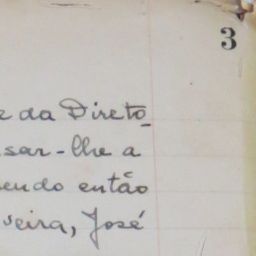 3
e da Direto_
sar-lhe a
endo então
veira, José